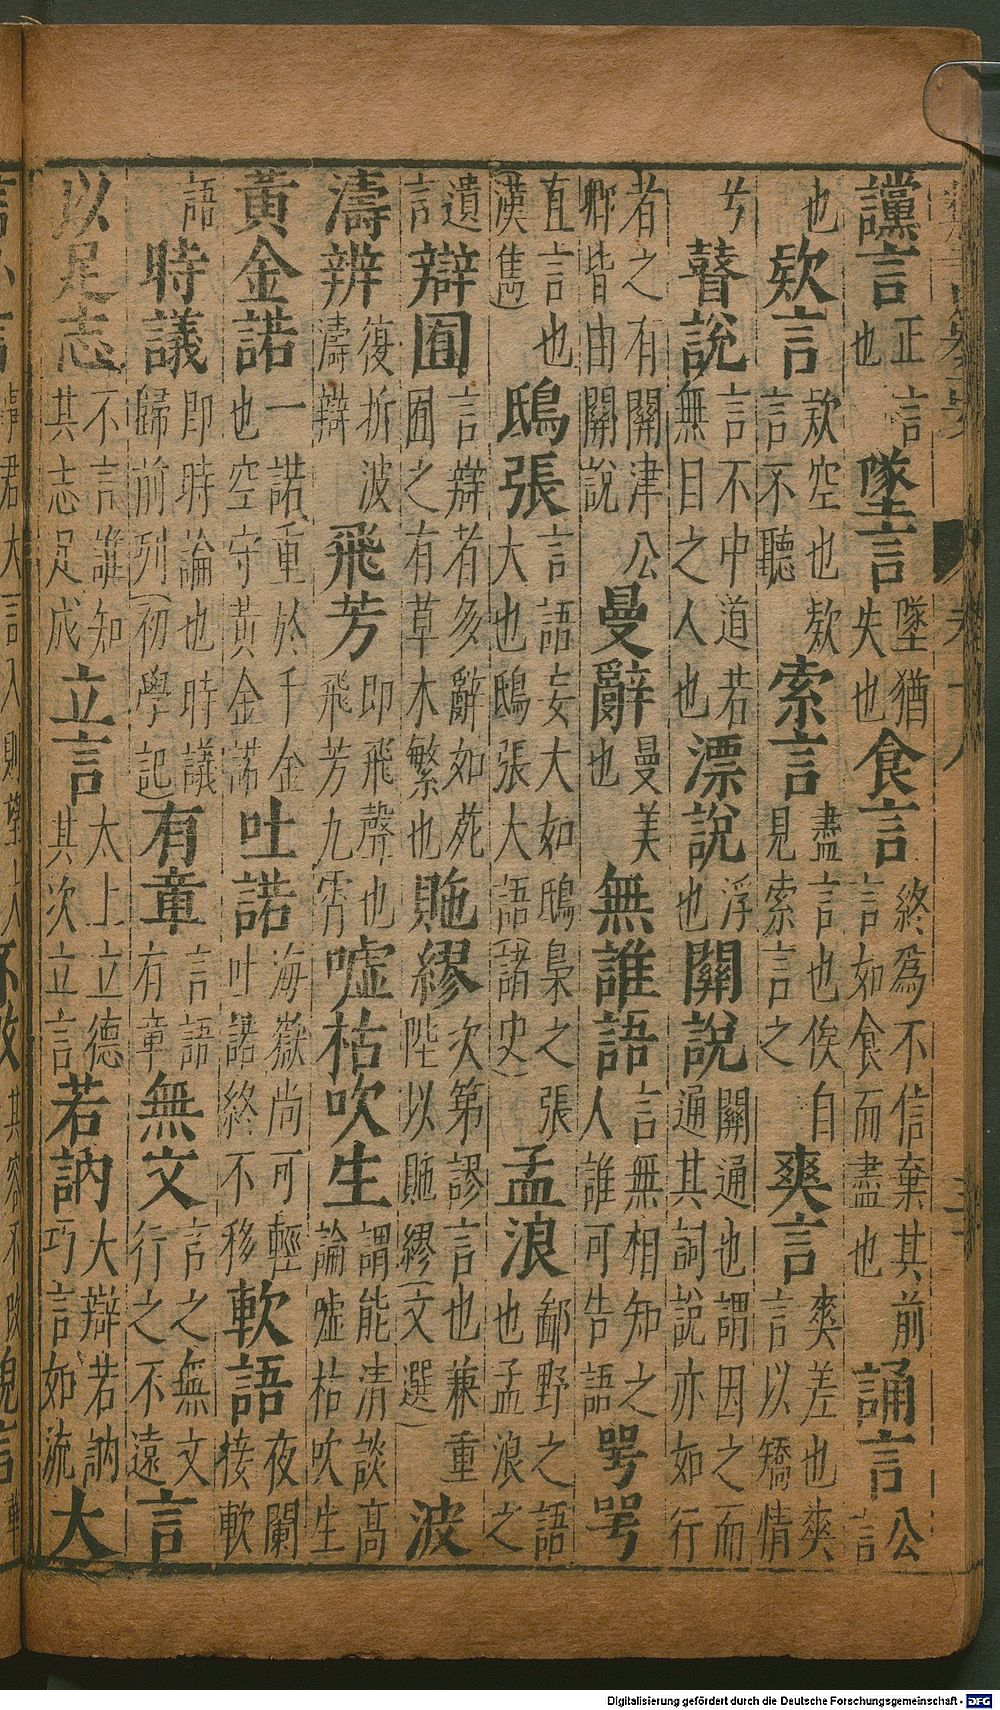 讜言正言也墜言墜猶失也食言終爲不信棄其前言如食而盡也誦言公言
也欵言欵空也欵言不聽索言盡言也俟自見索言之爽言爽差也爽言以矯情
兮瞽說言不中道若無目之人也漂說浮也關說關通也謂因之而通其詞說亦如行
者之有關津公卿皆由關說曼辭曼美也無誰語言無相知之人誰可告語咢咢
直言也漢雋鴟張言語妄大如鴟梟之張大也鴟張大語(諸史)孟浪鄙野之語也孟浪之
遺言辯囿言辯者多辭如苑囿之有草木繁也貤繆次第謬言也兼重陛以貤繆(文選)波
濤辨復折波濤辯飛芳即飛聲也飛芳九霄噓枯吹生謂能清談高論噓枯吹生
黃金諾一諾重於千金也空守黃金諾吐諾海嶽尚可輕吐諾終不移軟語夜闌接軟
語時議即時論也時議歸前列(初學記)有章言語有章無文言之無文行之不遠言
以足志不言誰知其志足成立言太上立德其次立言若訥大辯若訥巧言如流大
Digitalisierung gefördert durch die Deutsche Forschungsgemeinschaft - DFG